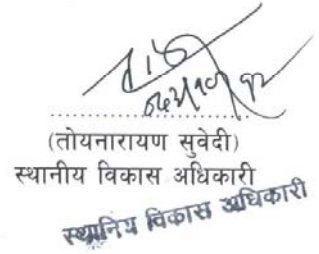 ....................................
(तोयनारायण सुवेदी)
स्थानीय विकास अधिकारी
स्थानिय विकास अधिकारी